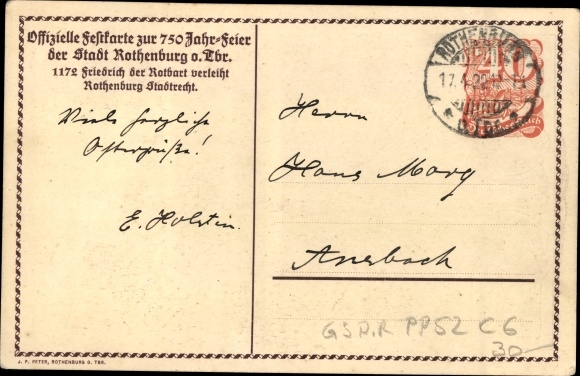 Offizielle Festkarte zur 750 Jahr-Feier
der Stadt Rothenburg o. Tbr.
1172 Friedrich der Rotbart verleiht
Rothenburg Stadtrecht.
Viele herzliche
Ostergrüße!
E. Holstin.
ROTHENBURG
17.4.22
O. TBR.
40
Herrn
Hans Morg
Ansbach
GSD.R PP52 C6
30-
J. P. PETER, ROTHENBURG O. TBR.